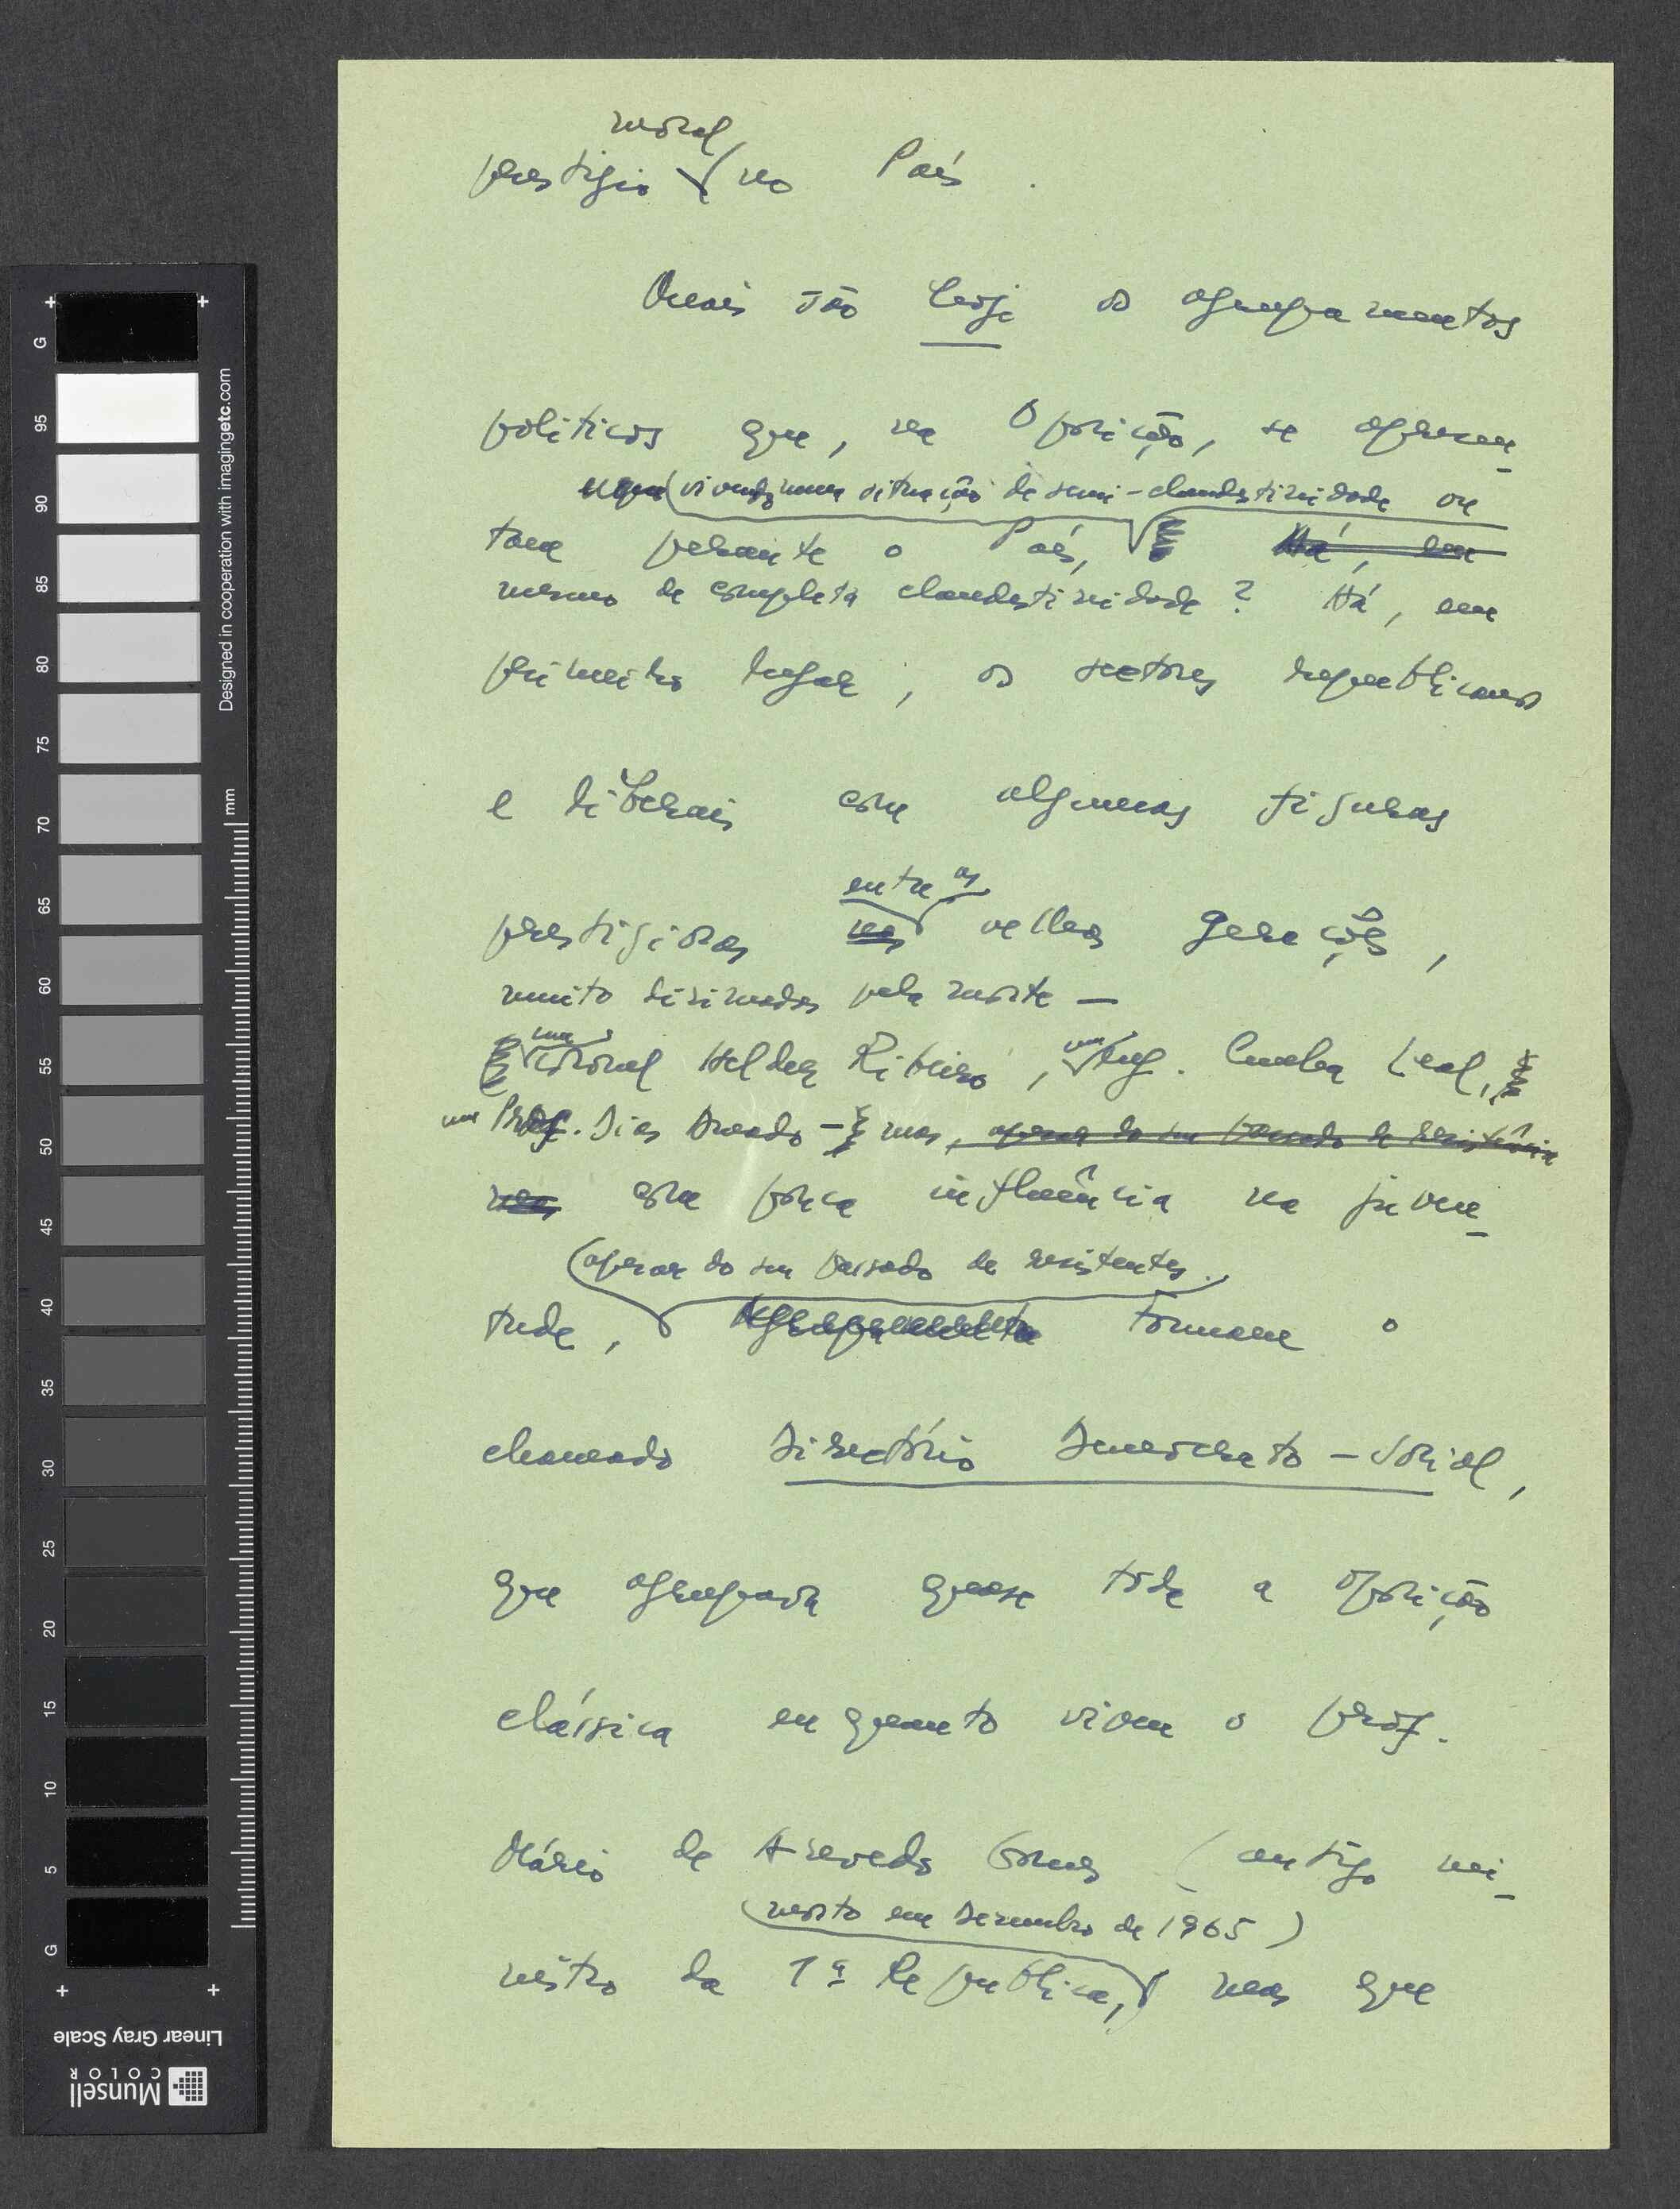 moral
prestígio no País.
Quais são hoje os agrupamentos
políticos que, na Oposição, se apresen-
vivendo numa situação de semi-clandestinidade ou
tam perante o País, Há, em
mesmo de completa clandestinidade? Há, em
primeiro lugar, os sectores republicanos
e liberais com algumas figuras
entre as
prestigiosas nas velhas gerações,
muito dizimadas pela morte —
um coronel Helder Ribeiro, um Eng. Cunha Leal,
um Prof. Dias Amado — mas, apesar do seu passado de resistência
com pouca influência na juven-
(apesar do seu passado de resistentes.
tude, Formam o
chamado Directório Democrato-Social,
que agrupava quase toda a oposição
clássica enquanto viveu o prof.
Mário de Azevedo Gomes (antigo mi-
(morto em Dezembro de 1965)
nistro da 1ª República, mas que
Designed in cooperation with imagingetc.com
mm
G 95 90 85 80 75 70 65 60 55 50 45 40 35 30 25 20 15 10 5 G
Linear Gray Scale
Munsell
COLOR